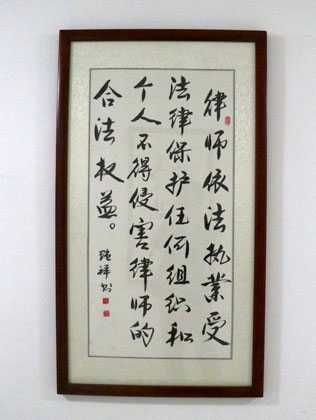 律师依法执业受
法律保护任何组织和
个人不得侵害律师的
合法权益。